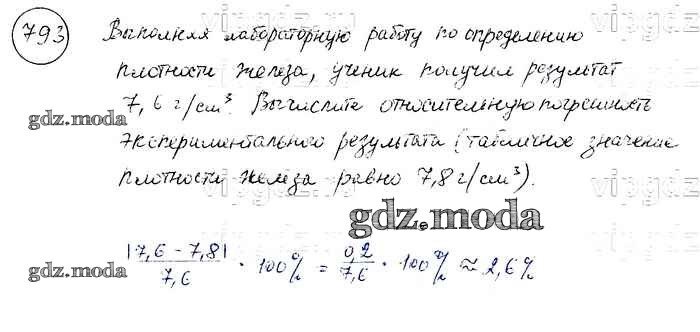 793 Выполняя лабораторную работу по определению
плотности железа, ученик получил результат
7,6 г/см³. Вычислите относительную погрешность
экспериментального результата (табличное значение
плотности железа равно 7,8 г/см³).
|7,6 - 7,8| / 7,6 · 100% = 0,2 / 7,6 · 100% ≈ 2,6%
gdz.moda
gdz.moda
gdz.moda
vipgdz
vipgdz
vipgdz